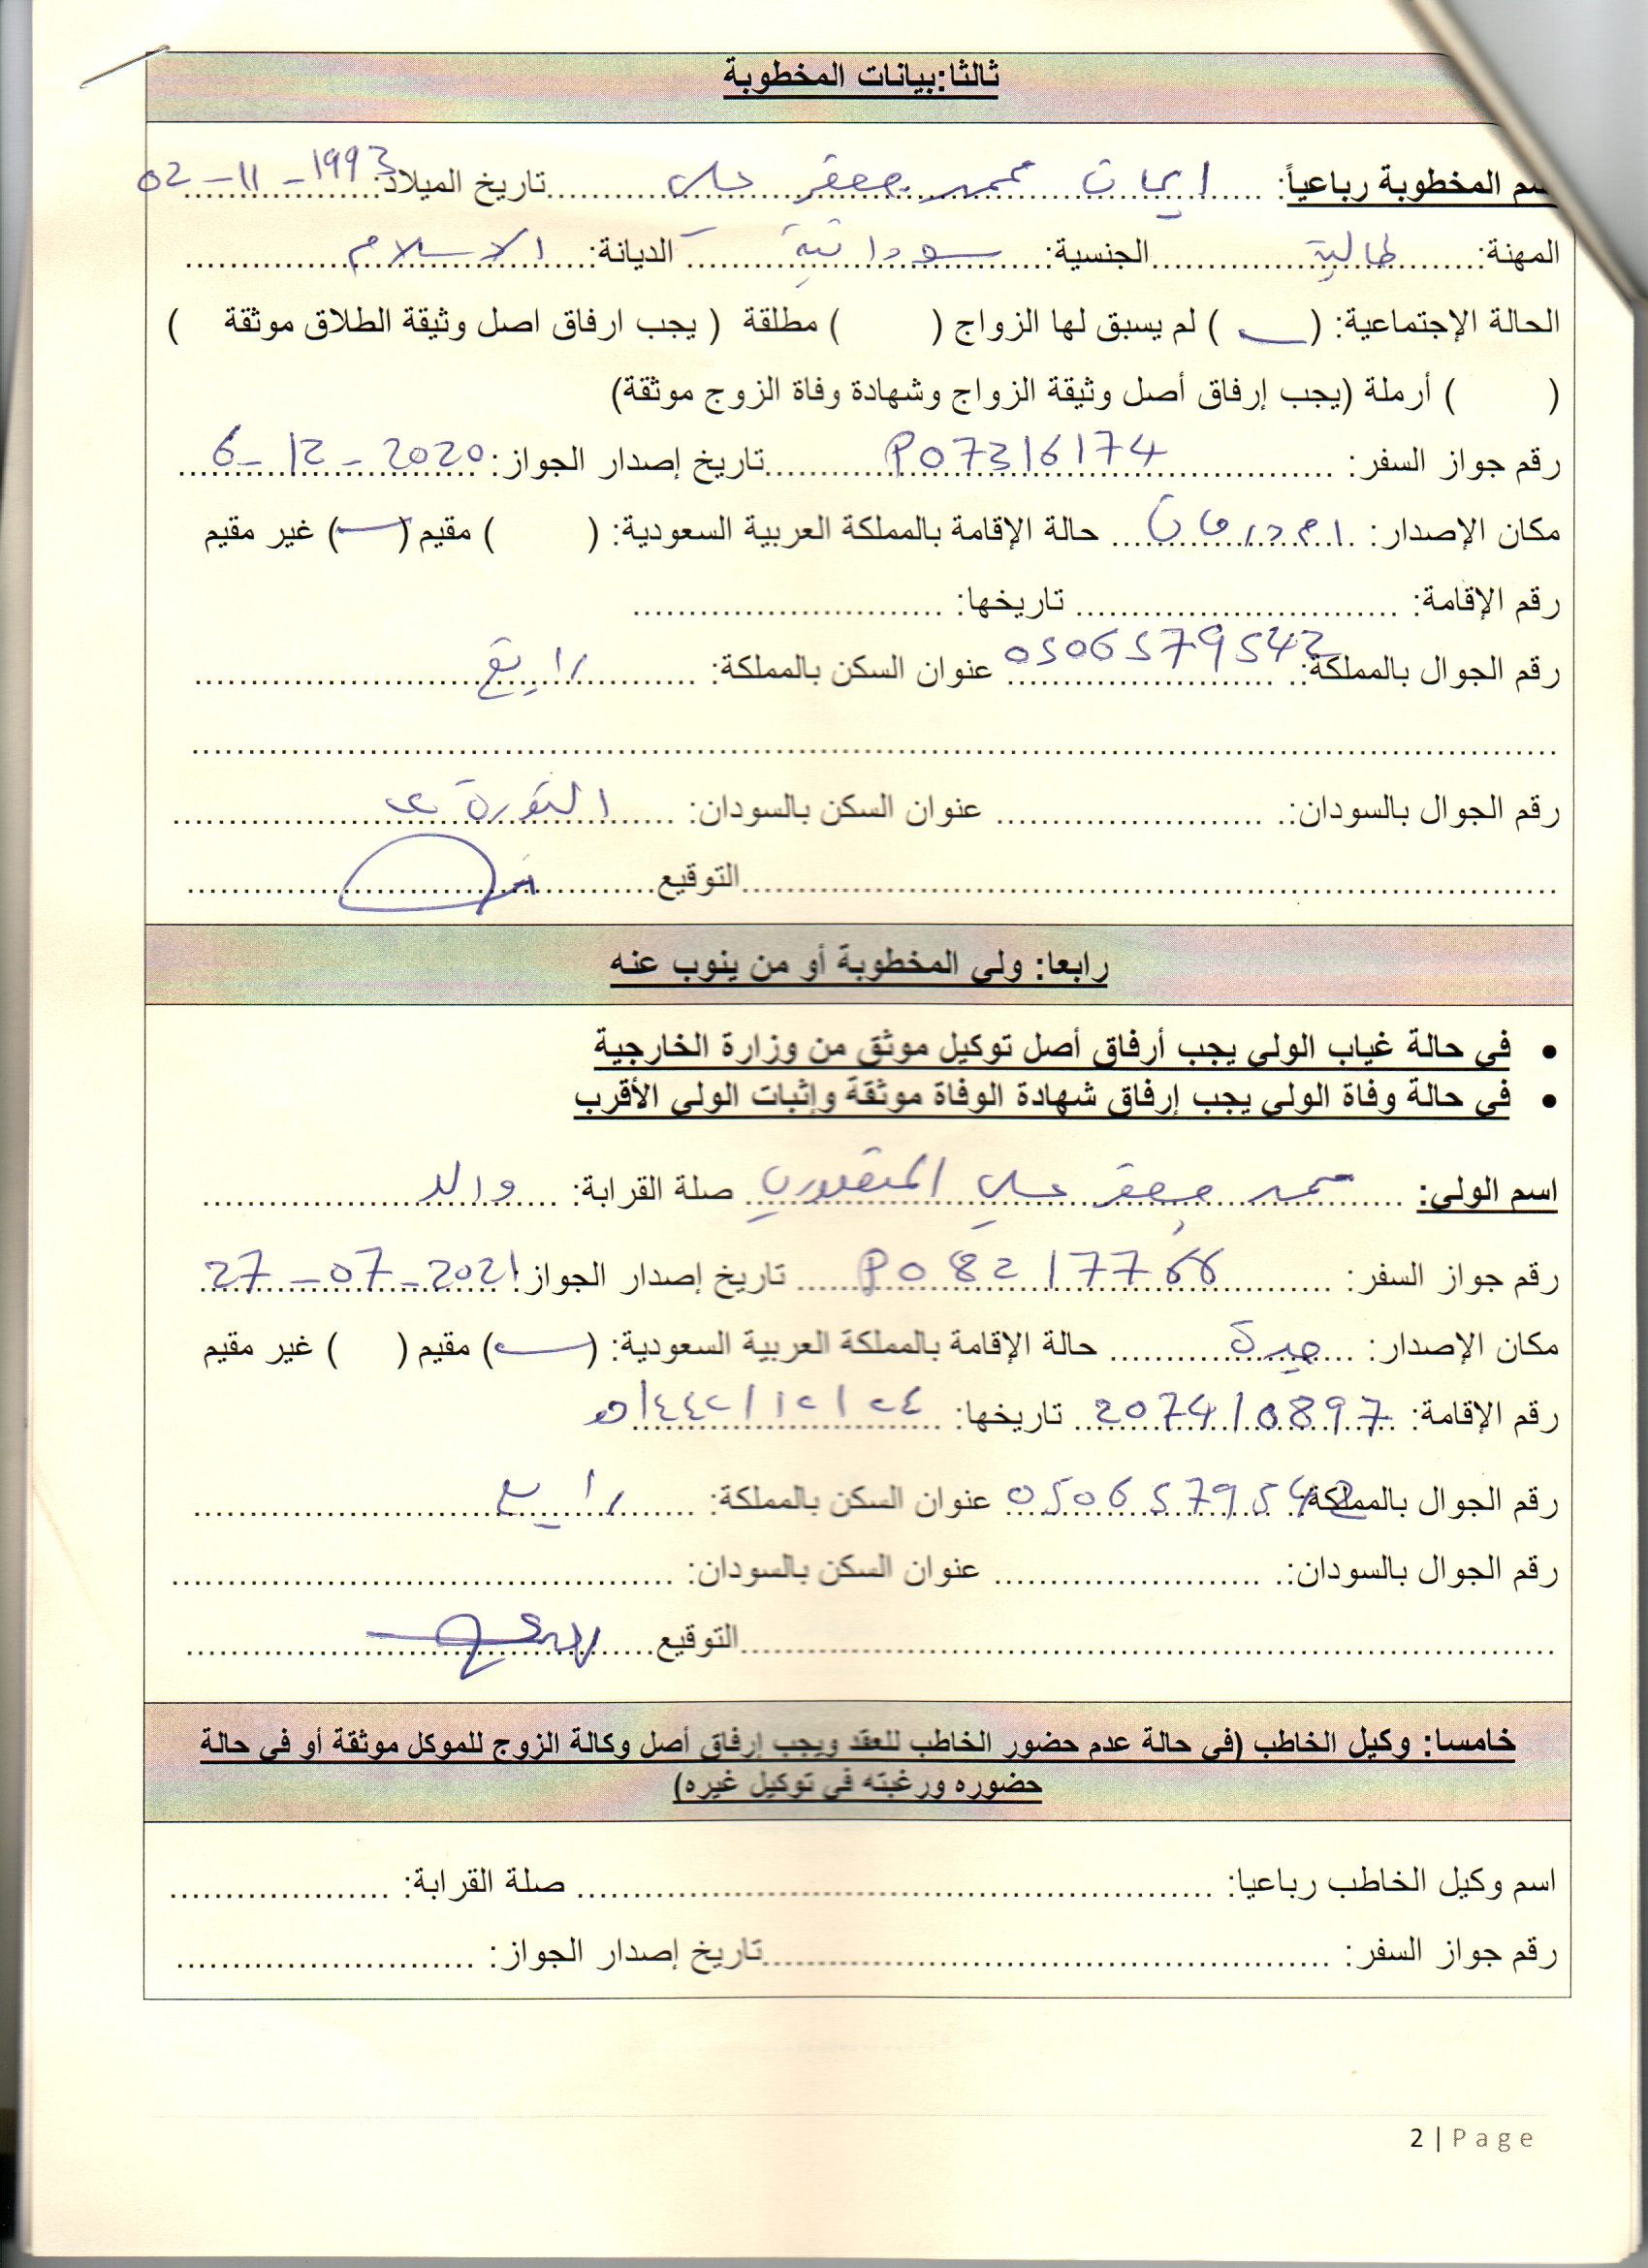 ثالثا:بيانات المخطوبة
سم المخطوبة رباعياً: ايمان محمد جعفر علي تاريخ الميلاد: 02-11-1993
المهنة: طالبة الجنسية: سودانية الديانة: الاسلام
الحالة الإجتماعية: ( ) لم يسبق لها الزواج ( ) مطلقة ( يجب ارفاق اصل وثيقة الطلاق موثقة )
( ) أرملة (يجب إرفاق أصل وثيقة الزواج وشهادة وفاة الزوج موثقة)
رقم جواز السفر: P07316174 تاريخ إصدار الجواز: 6-12-2020
مكان الإصدار: امدرمان حالة الإقامة بالمملكة العربية السعودية: ( ) مقيم ( ) غير مقيم
رقم الإقامة: تاريخها:
رقم الجوال بالمملكة: 0506579542 عنوان السكن بالمملكة: رابغ
رقم الجوال بالسودان: عنوان السكن بالسودان: الثورة
التوقيع
رابعا: ولي المخطوبة أو من ينوب عنه
• في حالة غياب الولي يجب أرفاق أصل توكيل موثق من وزارة الخارجية
• في حالة وفاة الولي يجب إرفاق شهادة الوفاة موثقة وإثبات الولي الأقرب
اسم الولي: محمد جعفر علي صلة القرابة: والد
رقم جواز السفر: P08217766 تاريخ إصدار الجواز: 27-07-2021
مكان الإصدار: جدة حالة الإقامة بالمملكة العربية السعودية: ( ) مقيم ( ) غير مقيم
رقم الإقامة: 207410897 تاريخها: ٢٤/١٢/١٤٤٢هـ
رقم الجوال بالمملكة: 0506579542 عنوان السكن بالمملكة: رابغ
رقم الجوال بالسودان: عنوان السكن بالسودان:
التوقيع
خامسا: وكيل الخاطب (في حالة عدم حضور الخاطب للعقد ويجب إرفاق أصل وكالة الزوج للموكل موثقة أو في حالة
حضوره ورغبته في توكيل غيره)
اسم وكيل الخاطب رباعيا: صلة القرابة:
رقم جواز السفر: تاريخ إصدار الجواز:
2 | Page